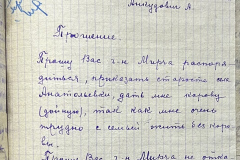 Анкудович А.
Прошение.
Прошу Вас г-н Мирча распоря
диться, приказать старосте сел
Анатольевки, дать мне корову
(дойную), так как мне очень
трудно с семьей жить без коро
вы.
Прошу Вас г-н Мирча не отка